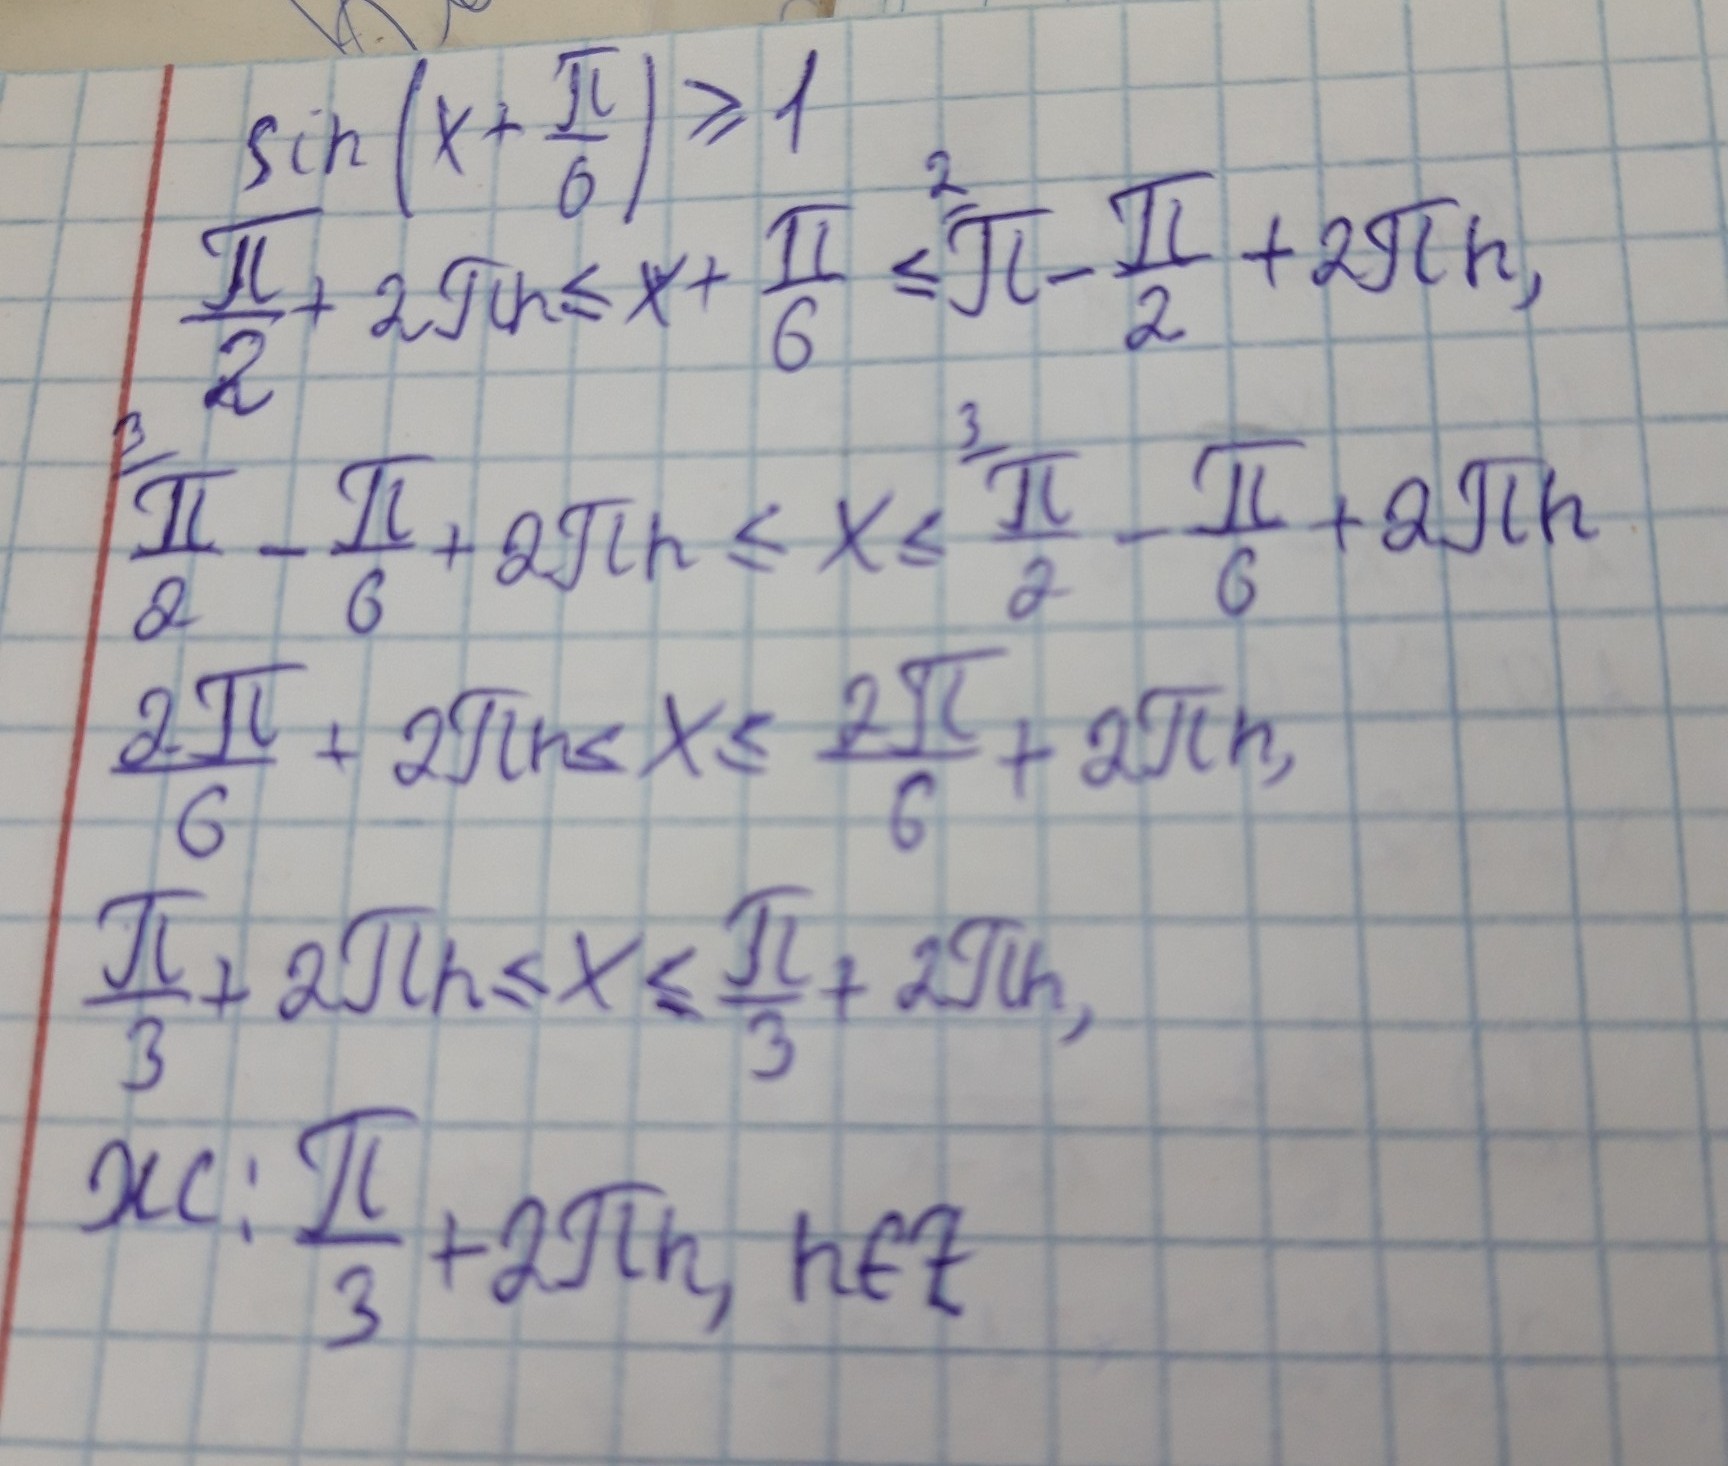 sin(x + π/6) ≥ 1
π/2 + 2πn ≤ x + π/6 ≤ ²⁄π - π/2 + 2πn,
³⁄π/2 - π/6 + 2πn ≤ x ≤ ³⁄π/2 - π/6 + 2πn
2π/6 + 2πn ≤ x ≤ 2π/6 + 2πn,
π/3 + 2πn ≤ x ≤ π/3 + 2πn,
жс: π/3 + 2πn, n∈Z